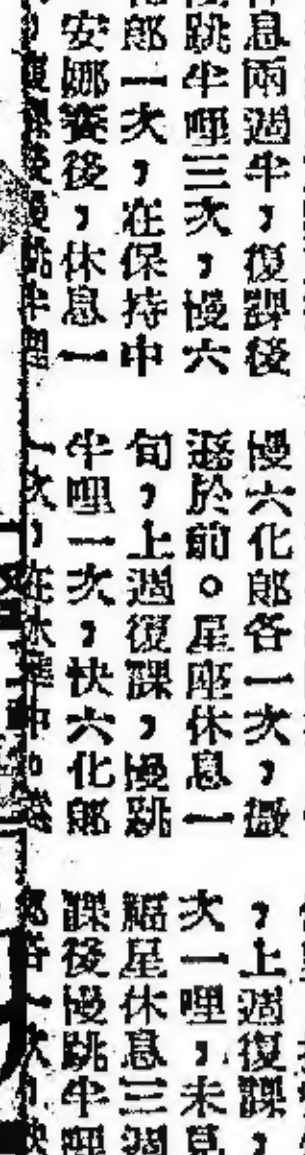 息兩週半，復課後
跳半哩三次，慢六
郎一次，在保持中
安娜賽後，休息一
復課後慢跳半哩
慢六化郎各一次，
遜於前。星座休息一
旬，上週復課，慢跳
半哩一次，快六化郎
一次，在休
，上週復課，
次一哩，未見
福星休息三週
課後慢跳半哩
各一次，快